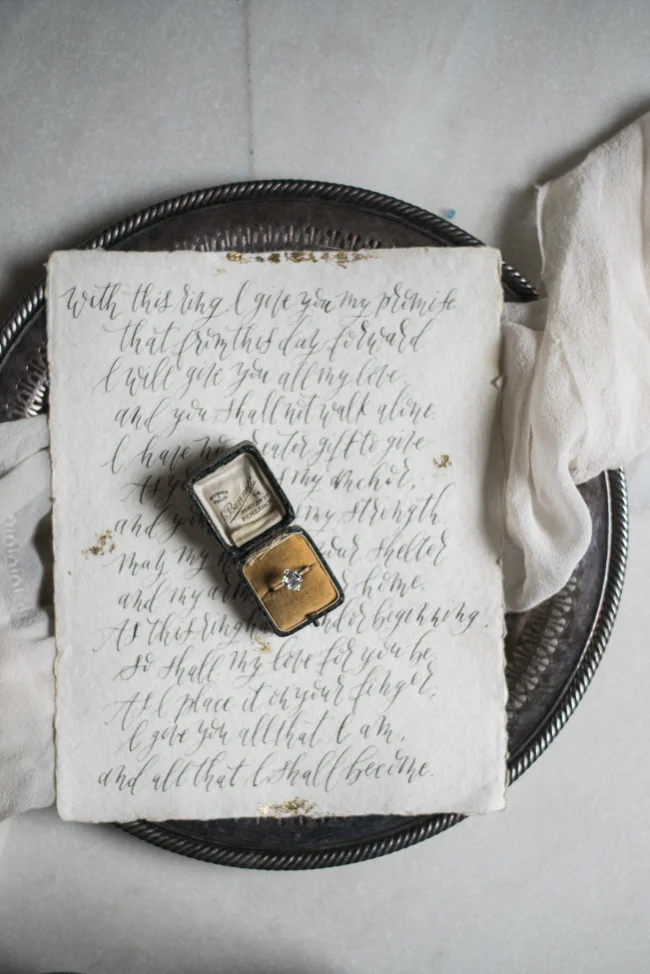 With this ring I give you my promise
that from this day forward
I will give you all my love.
and you shall not walk alone.
I have no gift to give
As my anchor,
and my strength.
may my your shelter
and my home.
As this ring or beginning,
so shall my love for you be
As I place it on your finger,
I give you all that I am.
and all that I shall become.